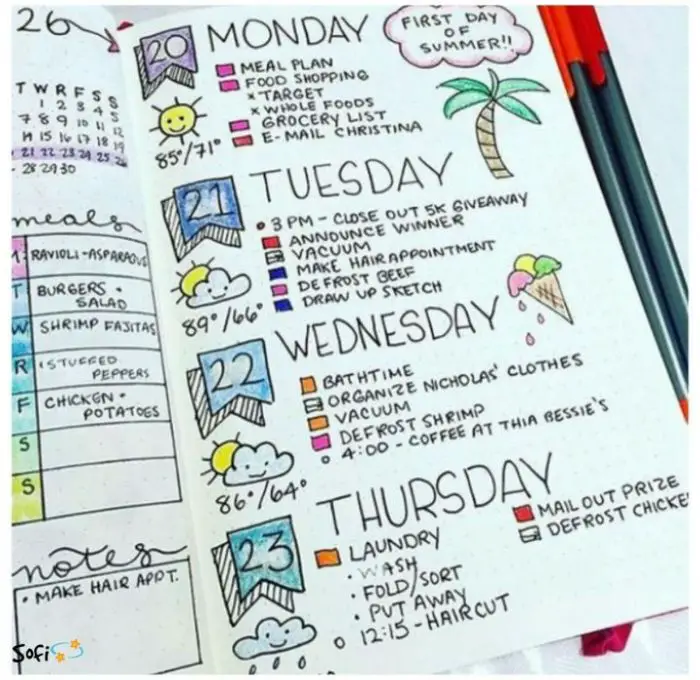 26
T W R F S S
1 2 3 4 5
7 8 9 10 11 12
14 15 16 17 18 19
21 22 23 24 25 26
28 29 30
meals
RAVIOLI-ASPARAGUS
T BURGERS +
SALAD
W SHRIMP FAJITAS
R STUFFED
PEPPERS
F CHICKEN +
POTATOES
S
S
notes
• MAKE HAIR APPT.
Sofi
20 MONDAY
MEAL PLAN
FOOD SHOPPING
x TARGET
x WHOLE FOODS
GROCERY LIST
E-MAIL CHRISTINA
85°/71°
FIRST DAY
OF
SUMMER!!
21 TUESDAY
3 PM - CLOSE OUT 5K GIVEAWAY
ANNOUNCE WINNER
VACUUM
MAKE HAIR APPOINTMENT
DEFROST BEEF
DRAW UP SKETCH
89°/66°
22 WEDNESDAY
BATHTIME
ORGANIZE NICHOLAS' CLOTHES
VACUUM
DEFROST SHRIMP
4:00 - COFFEE AT THIA BESSIE'S
86°/64°
23 THURSDAY
LAUNDRY
• WASH
• FOLD/SORT
• PUT AWAY
12:15 - HAIRCUT
MAIL OUT PRIZE
DEFROST CHICKE